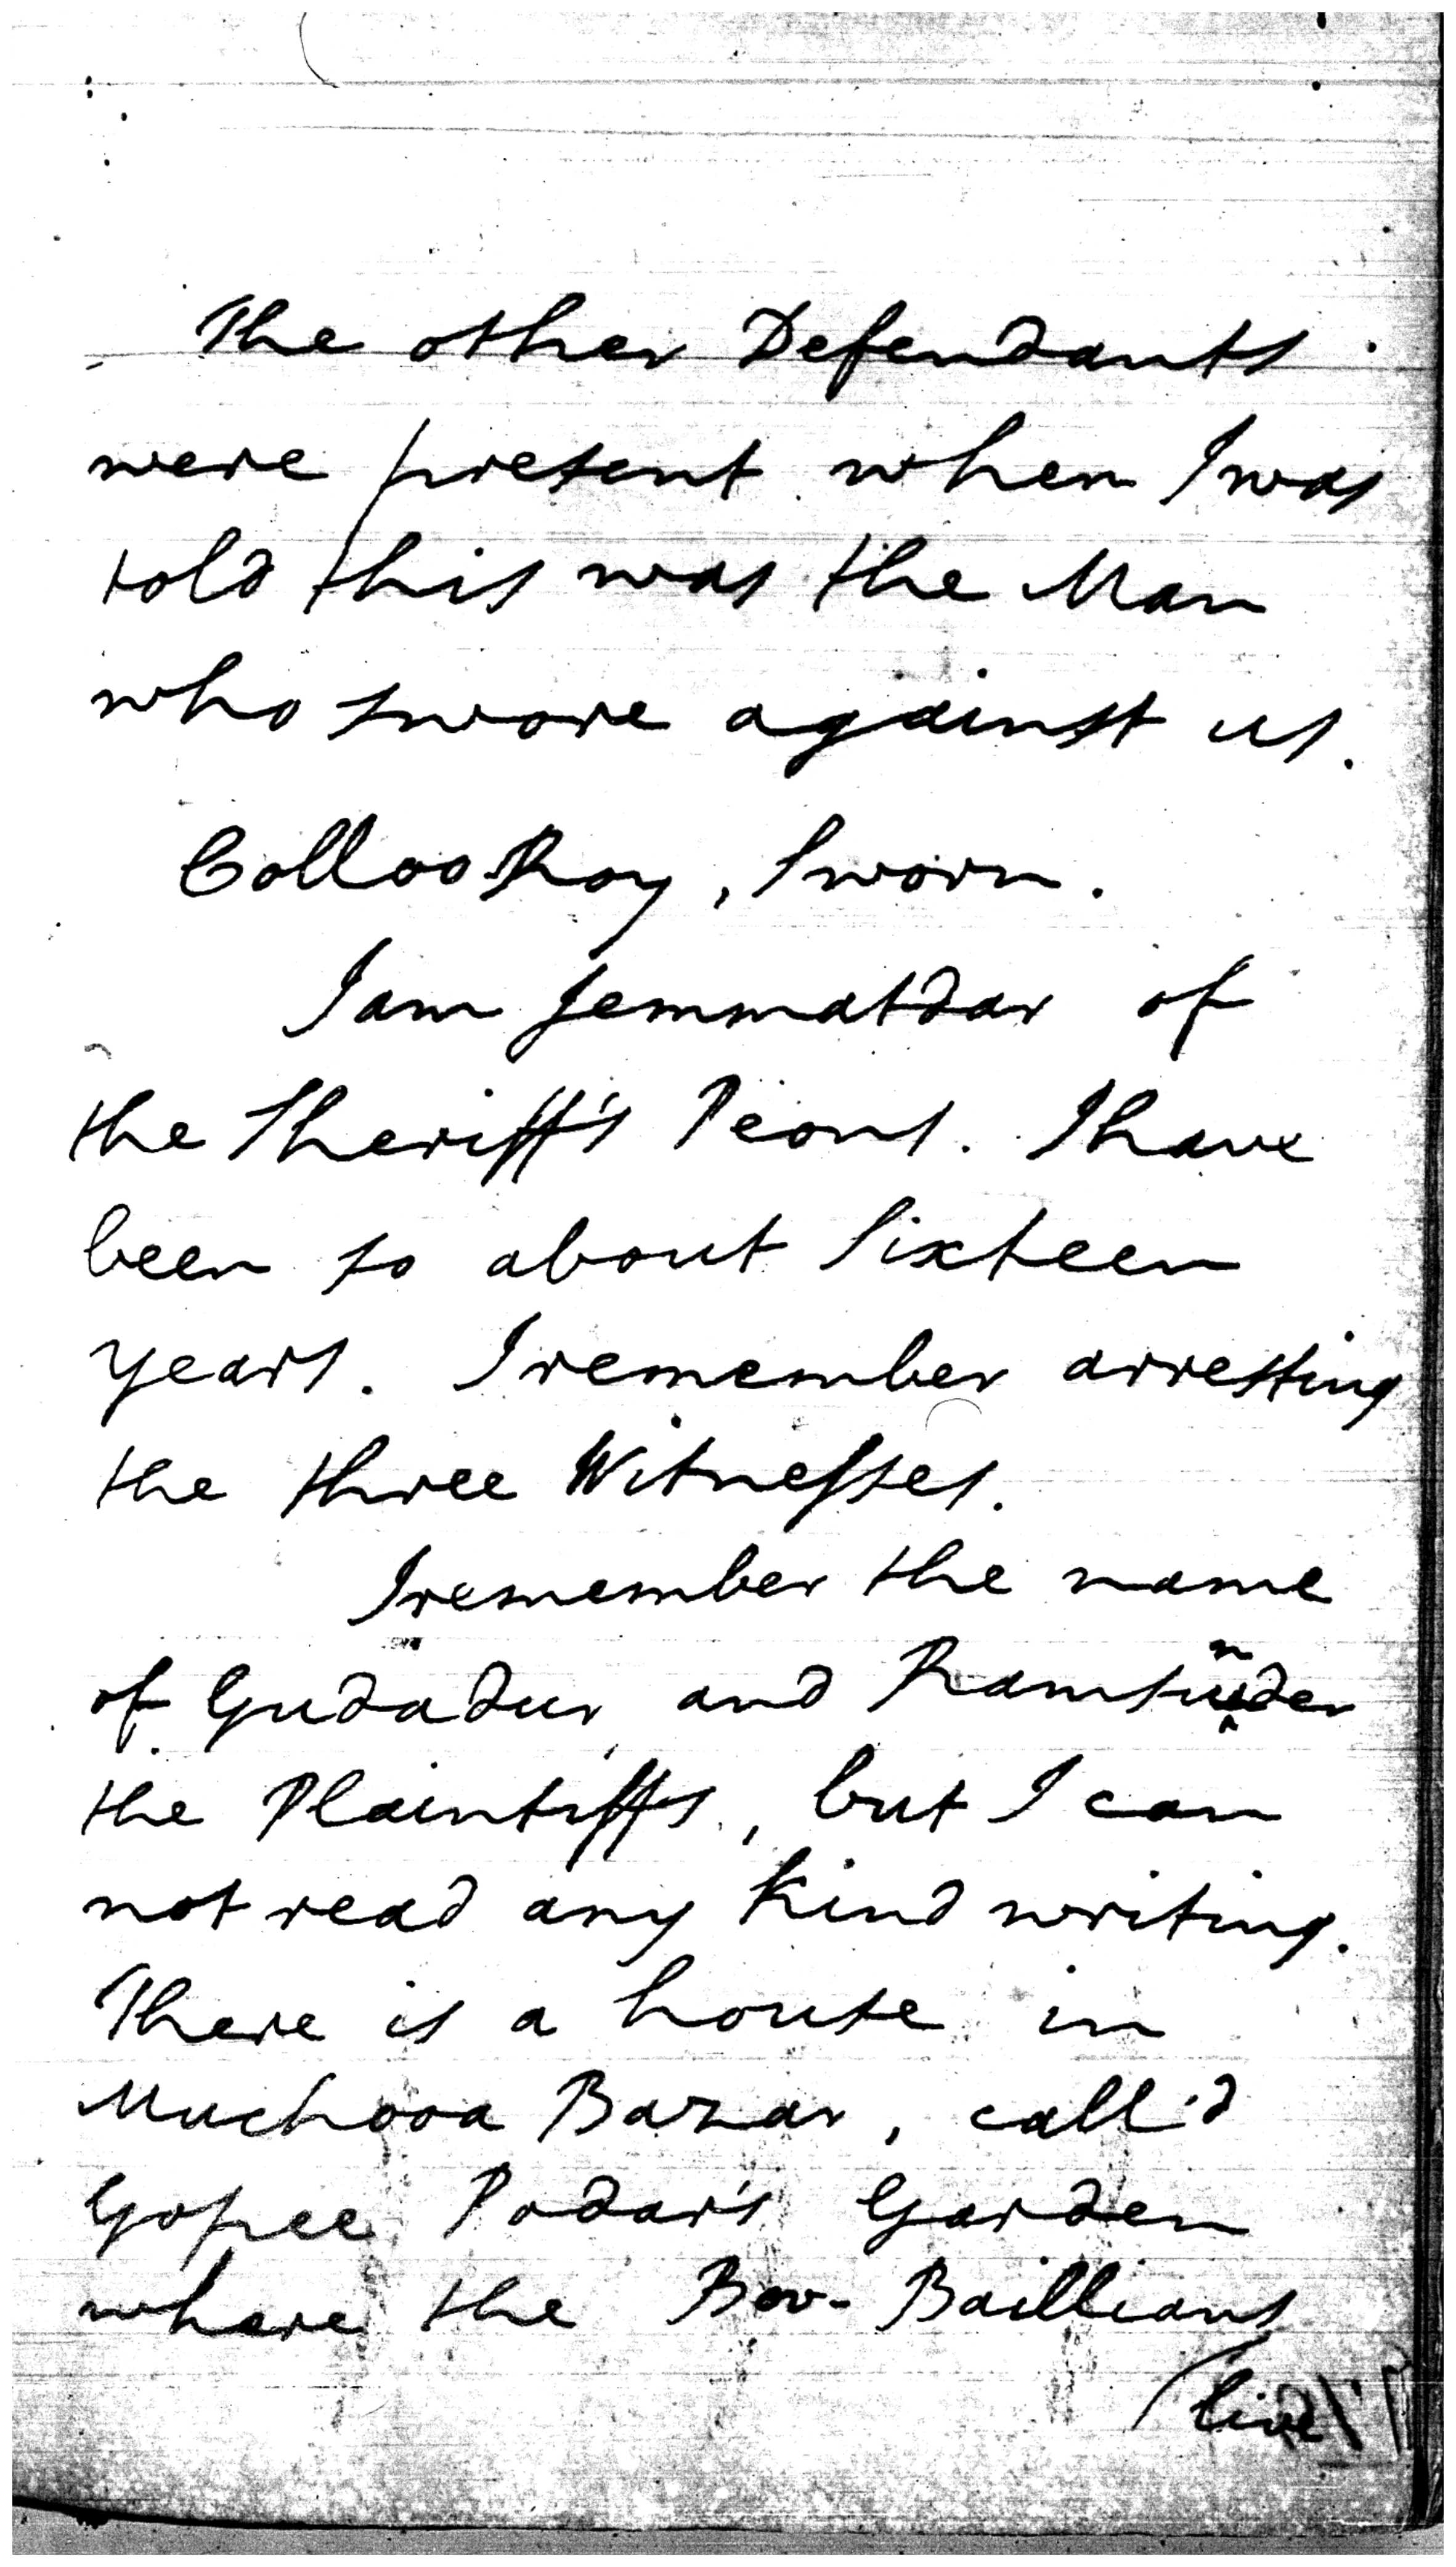 The other Defendants
were present when I was
told this was the Man
who swore against us.
Colloo Roy, Sworn.
I am Jemmatdar of
the Sheriff's Peons. I have
been so about Sixteen
years. I remember arresting
the three Witnesses.
I remember the name
of Gudadur and Ramsunder
the Plaintiffs, but I can
not read any kind writing.
There is a house in
Muchooa Bazar, call'd
Gopee Podar's Garden
where the Bow-Baillians
live